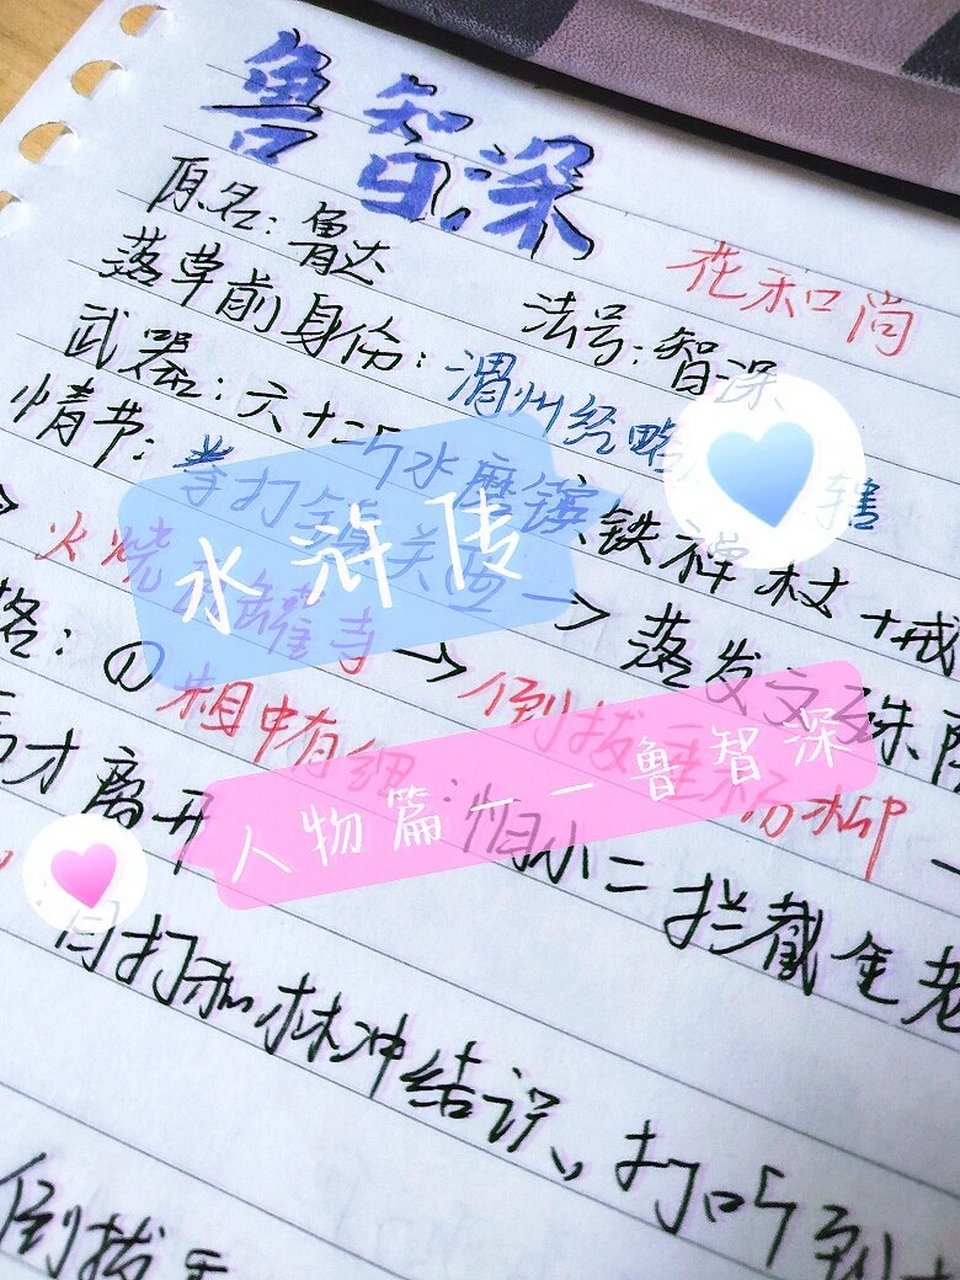 鲁智深
花和尚
原名：鲁达
法号：智深
落草前身份：渭州经略 辖
武器：六十二斤水磨镔铁禅杖+戒
情节：拳打镇关西→落发文殊院
火烧瓦罐寺→倒拔垂杨柳
格：①粗中有细：怕小二拦截金老
后才离开
自打和林冲结识、打听到
倒拔垂
水浒传
人物篇——鲁智深